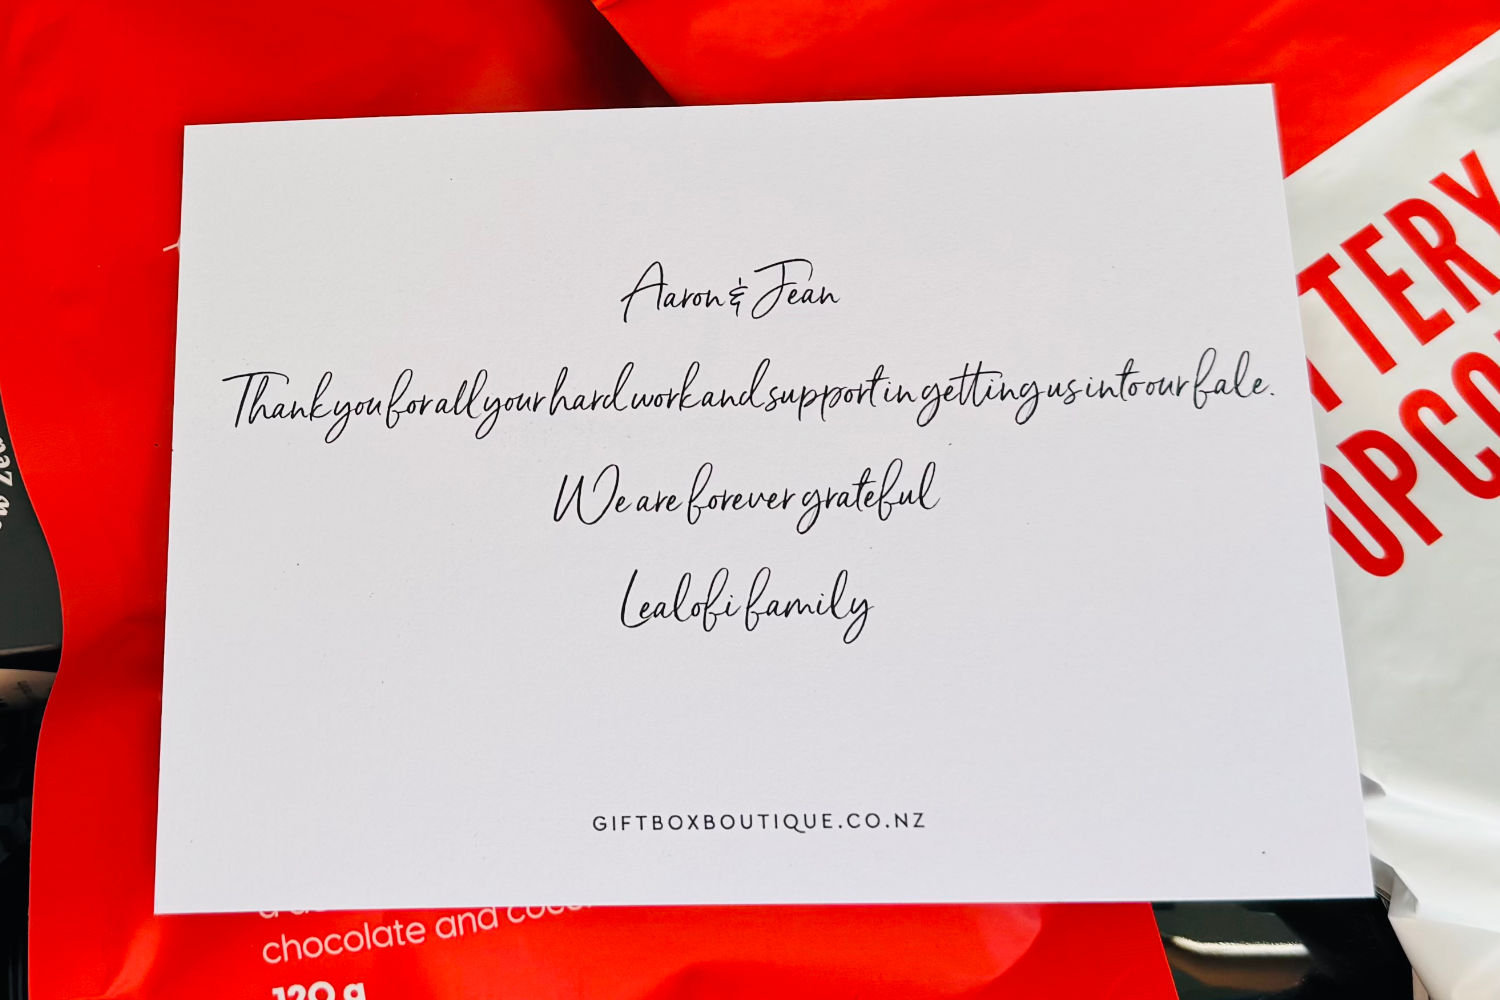 Aaron & Jean
Thank you for all your hard work and support in getting us into our fale.
We are forever grateful
Lealofi family
GIFTBOXBOUTIQUE.CO.NZ
TTERY
chocolate and
120 g